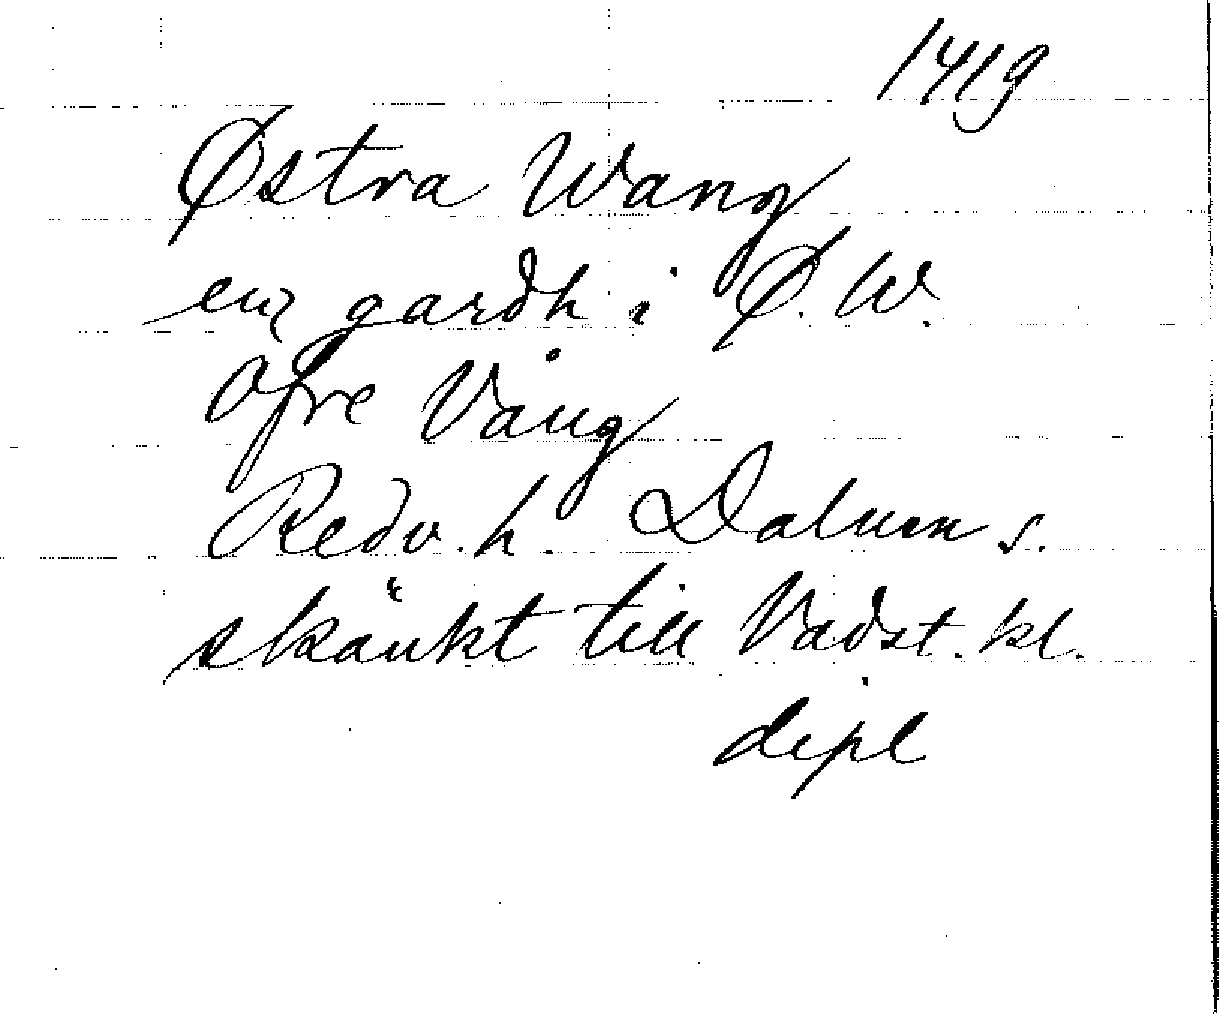 1419
Østra Wang
en gardh i Ø. W.
Ofre Vång
Redv. h. Dalum s.
skänkt till Vadst. kl.
dipl